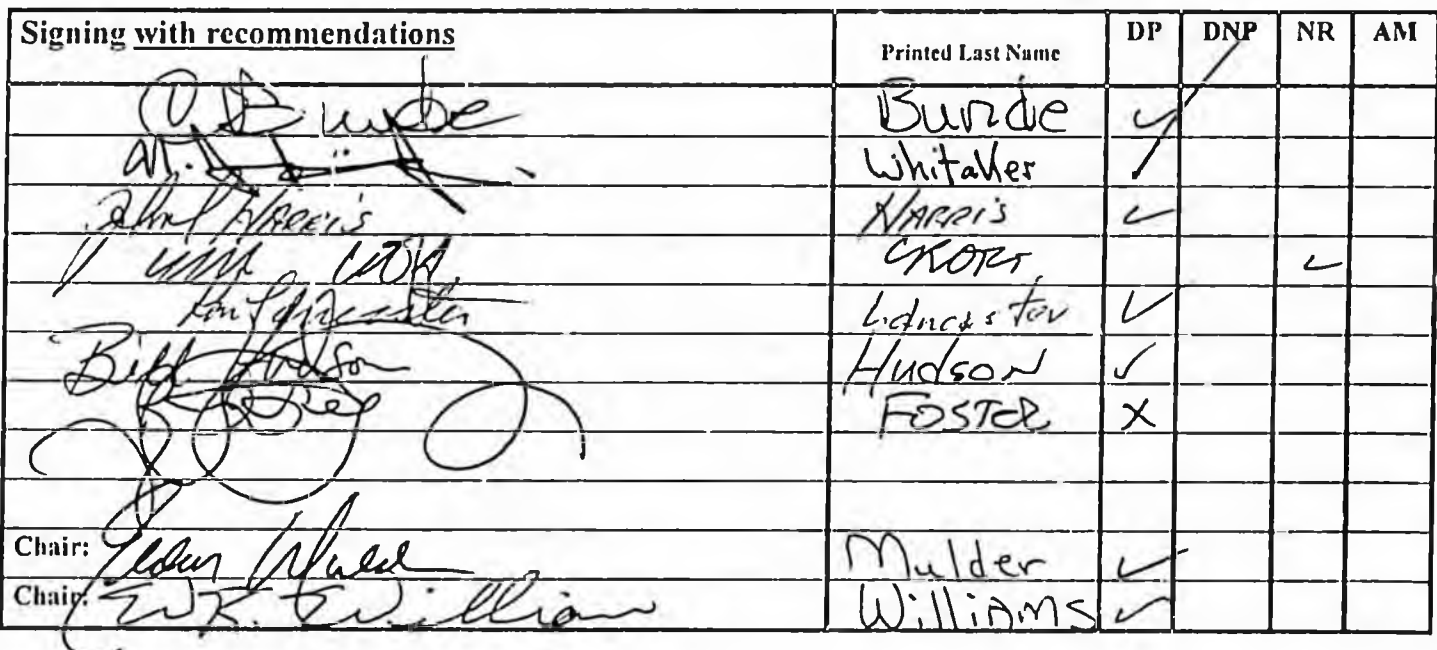 Signing with recommendations Printed Last Name DP DNP NR AM
C. Bunde Bunde ✓
Whitaker ✓
Harris HARRIS ✓
CROFT ✓
Lancaster ✓
Bill Hudson Hudson ✓
FOSTER X
Chair: Eldon Mulder Mulder ✓
Chair: W.K. Williams Williams ✓